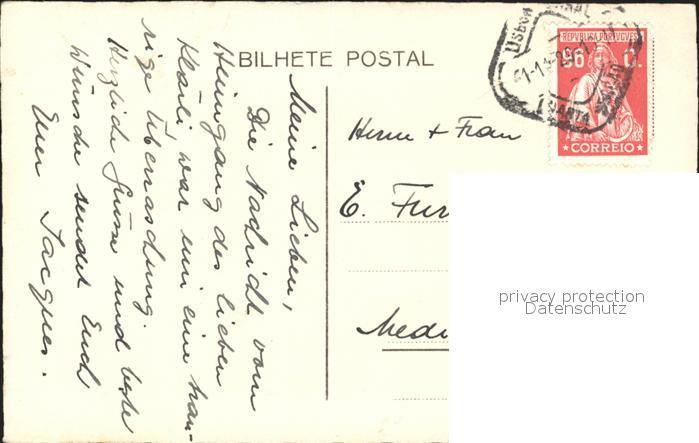 BILHETE POSTAL
Lisboa
REPVBLICA PORTVGVESA
96 C.
CORREIO
Meine Lieben,
Die Nachricht vom
Heimgang des lieben
Klärli war mir eine trau-
rige Überraschung.
Herzliche Grüsse und beste
Wünsche sendet Euch
Euer Jacques.
Herrn + Frau
E. Fur
privacy protection
Datenschutz